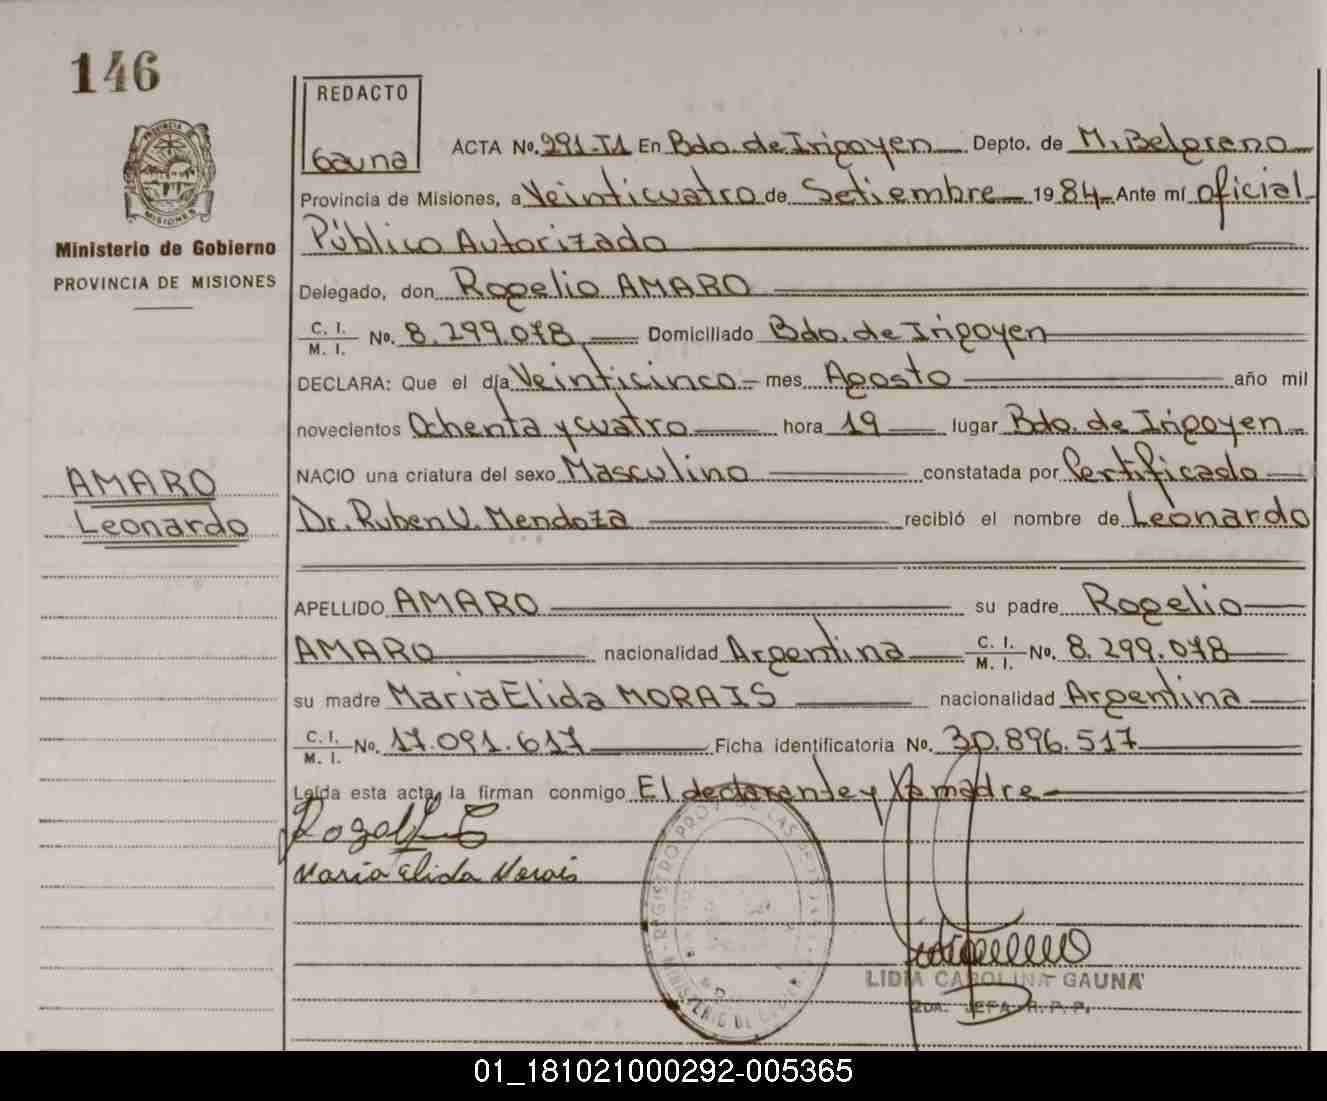 146
REDACTO
Gauna
PROVINCIA DE
MISIONES
Ministerio de Gobierno
PROVINCIA DE MISIONES
ACTA No. 291-T1 En Bdo. de Irigoyen Depto. de M. Belgrano
Provincia de Misiones, a Veinticuatro de Setiembre 1984 Ante mí oficial
Público Autorizado
Delegado, don Rogelio AMARO
C. I.
M. I. No. 8.299.078 Domiciliado Bdo. de Irigoyen
DECLARA: Que el día Veinticinco mes Agosto año mil
novecientos Ochenta y cuatro hora 19 lugar Bdo. de Irigoyen
NACIO una criatura del sexo Masculino constatada por Certificado
AMARO
Leonardo
Dr. Ruben V. Mendoza recibló el nombre de Leonardo
APELLIDO AMARO su padre Rogelio
AMARO nacionalidad Argentina C. I.
M. I. No. 8.299.078
su madre Maria Elida MORAIS nacionalidad Argentina
C. I.
M. I. No. 17.091.617 Ficha identificatoria No. 30.896.517
Leída esta acta, la firman conmigo El declarante y la madre
Maria Elida Morais
REGISTRO PROV. LAS PERSONAS
MINISTERIO DE GOBIERNO
LIDIA CAROLINA GAUNA
2DA. JEFA R.P.P.
01_181021000292-005365